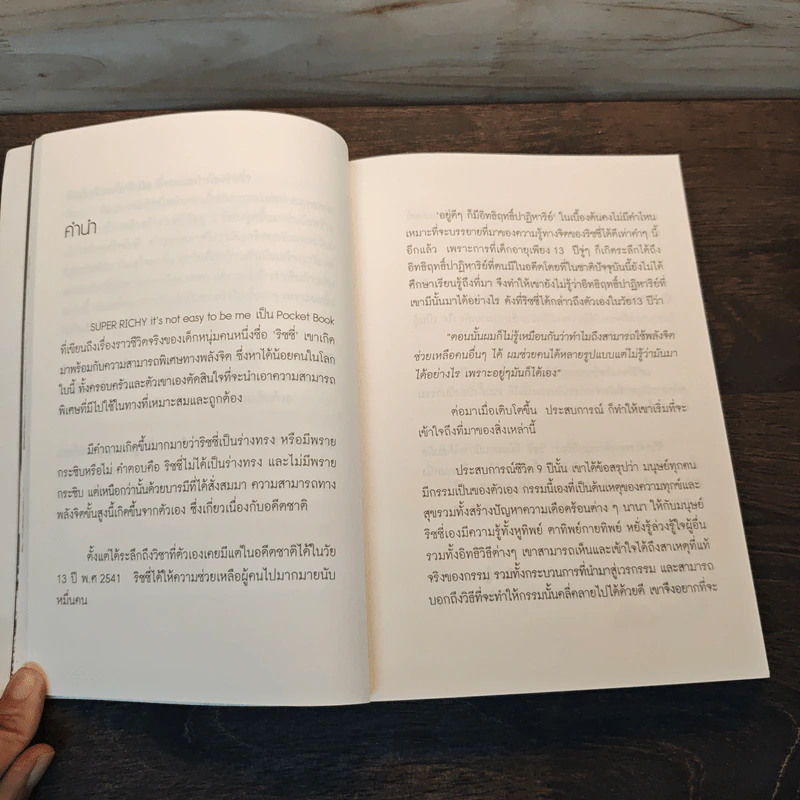 คำนำ
SUPER RICHY it's not easy to be me เป็น Pocket Book
ที่เขียนถึงเรื่องราวชีวิตจริงของเด็กหนุ่มคนหนึ่งชื่อ 'ริชชี่' เขาเกิด
มาพร้อมกับความสามารถพิเศษทางพลังจิต ซึ่งหาได้น้อยคนในโลก
ใบนี้ ทั้งครอบครัวและตัวเขาเองตัดสินใจที่จะนำเอาความสามารถ
พิเศษที่มีไปใช้ในทางที่เหมาะสมและถูกต้อง
มีคำถามเกิดขึ้นมากมายว่าริชชี่เป็นร่างทรง หรือมีพราย
กระซิบหรือไม่ คำตอบคือ ริชชี่ไม่ได้เป็นร่างทรง และไม่มีพราย
กระซิบ แต่เหนือกว่านั้นด้วยบารมีที่ได้สั่งสมมา ความสามารถทาง
พลังจิตขั้นสูงนี้เกิดขึ้นจากตัวเอง ซึ่งเกี่ยวเนื่องกับอดีตชาติ
ตั้งแต่ได้ระลึกถึงวิชาที่ตัวเองเคยมีแต่ในอดีตชาติได้ในวัย
13 ปี พ.ศ 2541 ริชชี่ได้ให้ความช่วยเหลือผู้คนไปมากมายนับ
หมื่นคน
'อยู่ดีๆ ก็มีอิทธิฤทธิ์ปาฏิหาริย์' ในเบื้องต้นคงไม่มีคำไหน
เหมาะที่จะบรรยายที่มาของความรู้ทางจิตของริชชี่ได้ดีเท่าคำๆ นี้
อีกแล้ว เพราะการที่เด็กอายุเพียง 13 ปีจู่ๆ ก็เกิดระลึกได้ถึง
อิทธิฤทธิ์ปาฏิหาริย์ที่ตนมีในอดีตโดยที่ในชาติปัจจุบันนี้ยังไม่ได้
ศึกษาเรียนรู้ถึงที่มา จึงทำให้เขายังไม่รู้ว่าอิทธิฤทธิ์ปาฏิหาริย์ที่
เขามีนั้นมาได้อย่างไร ดังที่ริชชี่ได้กล่าวถึงตัวเองในวัย13 ปีว่า
"ตอนนั้นผมก็ไม่รู้เหมือนกันว่าทำไมถึงสามารถใช้พลังจิต
ช่วยเหลือคนอื่นๆ ได้ ผมช่วยคนได้หลายรูปแบบแต่ไม่รู้ว่ามันมา
ได้อย่างไร เพราะอยู่ๆมันก็ได้เอง"
ต่อมาเมื่อเติบโตขึ้น ประสบการณ์ ก็ทำให้เขาเริ่มที่จะ
เข้าใจถึงที่มาของสิ่งเหล่านี้
ประสบการณ์ชีวิต 9 ปีนั้น เขาได้ข้อสรุปว่า มนุษย์ทุกคน
มีกรรมเป็นของตัวเอง กรรมนี้เองที่เป็นต้นเหตุของความทุกข์และ
สุขรวมทั้งสร้างปัญหาความเดือดร้อนต่าง ๆ นานา ให้กับมนุษย์
ริชชี่เองมีความรู้ทั้งหูทิพย์ ตาทิพย์กายทิพย์ หยั่งรู้ล่วงรู้ใจผู้อื่น
รวมทั้งอิทธิวิธีต่างๆ เขาสามารถเห็นและเข้าใจได้ถึงสาเหตุที่แท้
จริงของกรรม รวมทั้งกระบวนการที่นำมาสู่เวรกรรม และสามารถ
บอกถึงวิธีที่จะทำให้กรรมนั้นคลี่คลายไปได้ด้วยดี เขาจึงอยากที่จะ